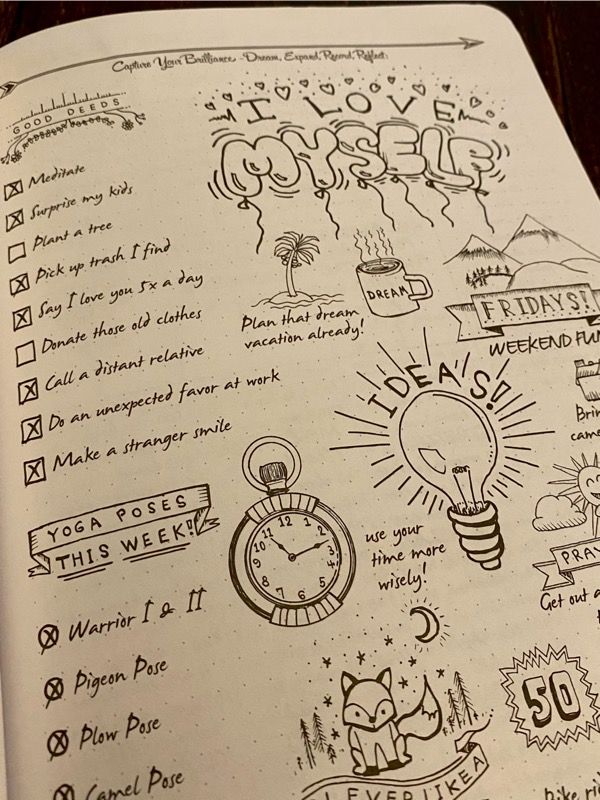 Capture Your Brilliance - Dream, Expand, Record, Reflect.
GOOD DEEDS
Meditate
Surprise my kids
Plant a tree
Pick up trash I find
Say I love you 5x a day
Donate those old clothes
Call a distant relative
Do an unexpected favor at work
Make a stranger smile
I LOVE
MYSELF
Plan that dream
vacation already!
DREAM
FRIDAYS!
WEEKEND FUN
IDEAS!
YOGA POSES
THIS WEEK!
12
1
2
3
4
5
6
7
8
9
10
11
use your
time more
wisely!
Warrior I & II
Pigeon Pose
Plow Pose
Camel Pose
Get out a
50
LIKE A